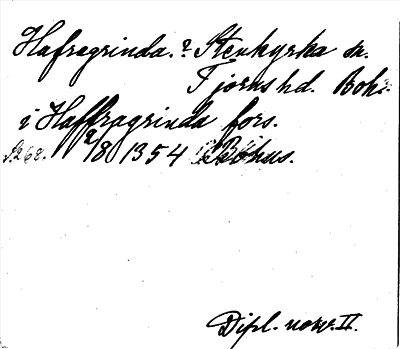 Hafragrinda. ? Stenkyrka sn.
Tjörns hd. Boh.
i Haffragrinda fors.
S. 268. 2/8 1354 Bohus.
Dipl. norv. II.